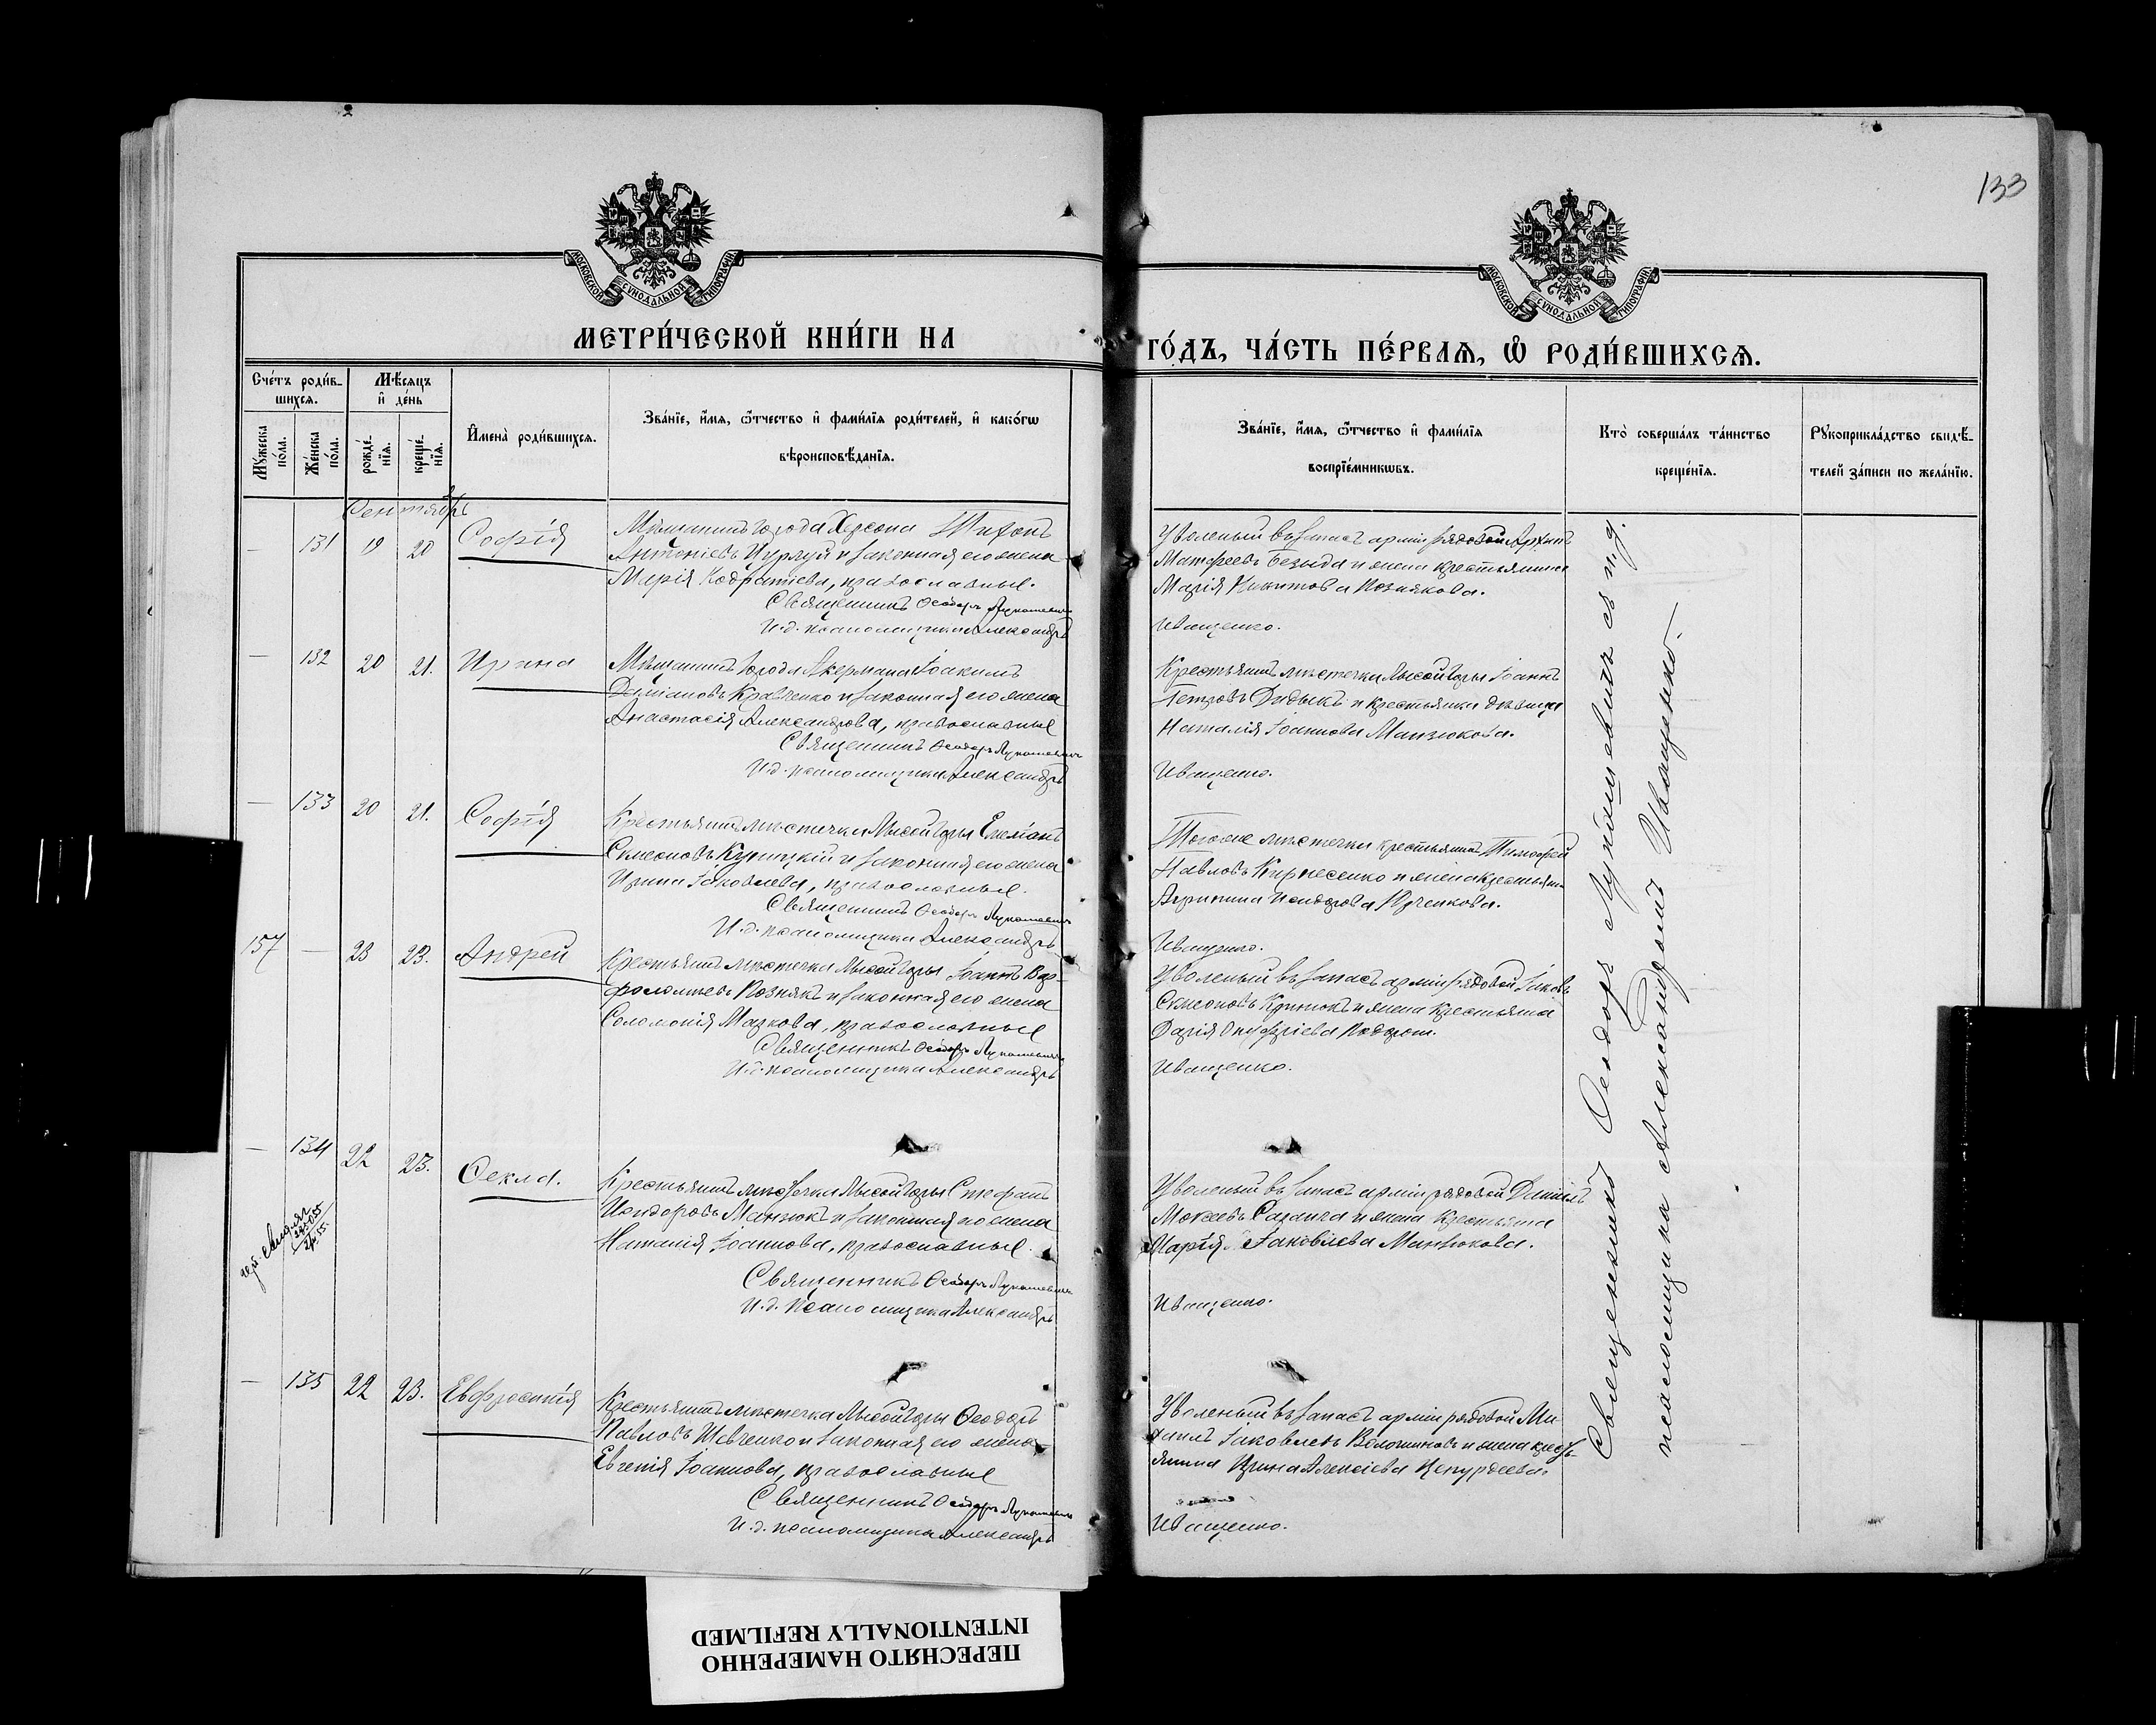 133
МОСКОВСКОЙ СУНОДАЛЬНОЙ ТИПОГРАФІИ
МОСКОВСКОЙ СУНОДАЛЬНОЙ ТИПОГРАФІИ
МЕТРИ́ЧЕСКОЙ КНИ́ГИ НА
ГО́ДЪ, ЧА́СТЬ ПЕ́РВАѦ, Ѽ РОДИ́ВШИХСѦ.
Сче́тъ роди́в-
шихсѧ.
Мѣ́сѧцъ
и҆ де́нь
Мꙋ́жеска
по́ла.
Же́нска
по́ла.
рожде́-
нїѧ.
креще́-
нїѧ.
И҆мена̀ роди́вшихсѧ.
Зва́нїе, и҆́мѧ, ѻ҆́тчество и҆ фами́лїѧ роди́телей, и҆ како́гѡ
вѣроисповѣ́данїѧ.
Зва́нїе, и҆́мѧ, ѻ҆́тчество и҆ фами́лїѧ
воспрїе́мникѡвъ.
Кто̀ соверша́лъ та́инство
креще́нїѧ.
Рꙋкоприкла́дство свидѣ́-
телей за́писи по жела́нїю.
Сентябрь
— 131 19 20 Софія
Мѣщанинъ города Херсона Тихонъ
Антоніевъ и законная его жена
Марія Кодратіева, православные.
Священникъ Ѳеодоръ Лукашевичъ
И. д. псаломщика Александръ
Уволеный въ запасъ арміи рядовой Архипъ
Матфеевъ Безида и жена крестьянина
Марія Никитова Познякова.
Иващенко.
— 132 20 21. Ирина
Мѣщанинъ города Акермана Іоакимъ
Даміановъ Кравченко и законная его жена
Анастасія Александрова, православные
Священникъ Ѳеодоръ Лукашевичъ
И. д. псаломщика Александръ
Крестьянинъ мѣстечка Лысой Горы Іоаннъ
Петровъ Дидыкъ и крестьянка дѣвица
Наталія Іоаннова Манзюкова.
Иващенко.
— 133 20 21. Софія
Крестьянинъ мѣстечка Лысой Горы Емеліанъ
Симеоновъ Куницкій и законная его жена
Ирина Іаковлева, православные.
Священникъ Ѳеодоръ Лукашевичъ
И. д. псаломщика Александръ
Тогоже мѣстечка крестьянинъ Тимофей
Павловъ Кирпесенко и жена крестьянина
Агрипина Исидорова Юрченкова.
Иващенко.
157 — 23 23. Андрей
Крестьянинъ мѣстечка Лысой Горы Іоаннъ Вар-
фоломеевъ Познякъ и законная его жена
Соломонія Маркова, православные
Священникъ Ѳеодоръ Лукашевичъ
И. д. псаломщика Александръ
Уволеный въ запасъ арміи рядовой Іаковъ
Симеоновъ Крюнокъ и жена крестьянина
Дарія Онуфріева
Иващенко.
— 134 22 23. Ѳекла.
Крестьянинъ мѣстечка Лысой Горы Стефанъ
Исидоровъ Манзюкъ и законная его жена
Наталія Іоаннова, православные.
Священникъ Ѳеодоръ Лукашевичъ
И. д. псаломщика Александръ
Уволеный въ запасъ арміи рядовой Даніилъ
Мокеевъ и жена крестьянина
Марія Іаковлева Манзюкова.
Иващенко.
— 135 22 23. Евфросинія
Крестьянинъ мѣстечка Лысой Горы Ѳеодоръ
Павловъ Шевченко и законная его жена
Евгенія Іоаннова, православные
Священникъ Ѳеодоръ Лукашевичъ
И. д. псаломщика Александръ
Уволеный въ запасъ арміи рядовой Ми-
хаилъ Іаковлевъ Волошиновъ и жена кресть-
янина Ирина Алексіева
Иващенко.
Священникъ Ѳеодоръ Лукашевичъ съ и. д.
псаломщика Александромъ Иващенко.
ПЕРЕСНЯТО НАМЕРЕННО
INTENTIONALLY REFILMED